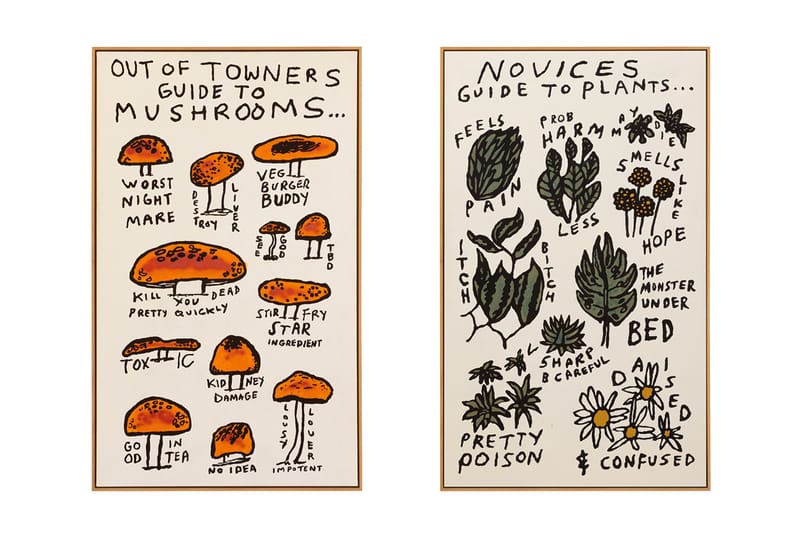 OUT OF TOWNERS
GUIDE TO
MUSHROOMS...
WORST
NIGHT
MARE
DESTROY
LIVER
VEG
BURGER
BUDDY
SEE
GOD
TBD
KILL YOU DEAD
PRETTY QUICKLY
STIR FRY
STAR
INGREDIENT
TOX IC
KID NEY
DAMAGE
GO IN
OD TEA
NO IDEA
LOUSY
LOVER
IMPOTENT
NOVICES
GUIDE TO PLANTS...
FEELS
PAIN
PROB
HARM
LESS
MAY
DIE
SMELLS
LIKE
HOPE
ITCH
BITCH
THE
MONSTER
UNDER
BED
SHARP
B CAREFUL
PRETTY
POISON
DAISED
& CONFUSED